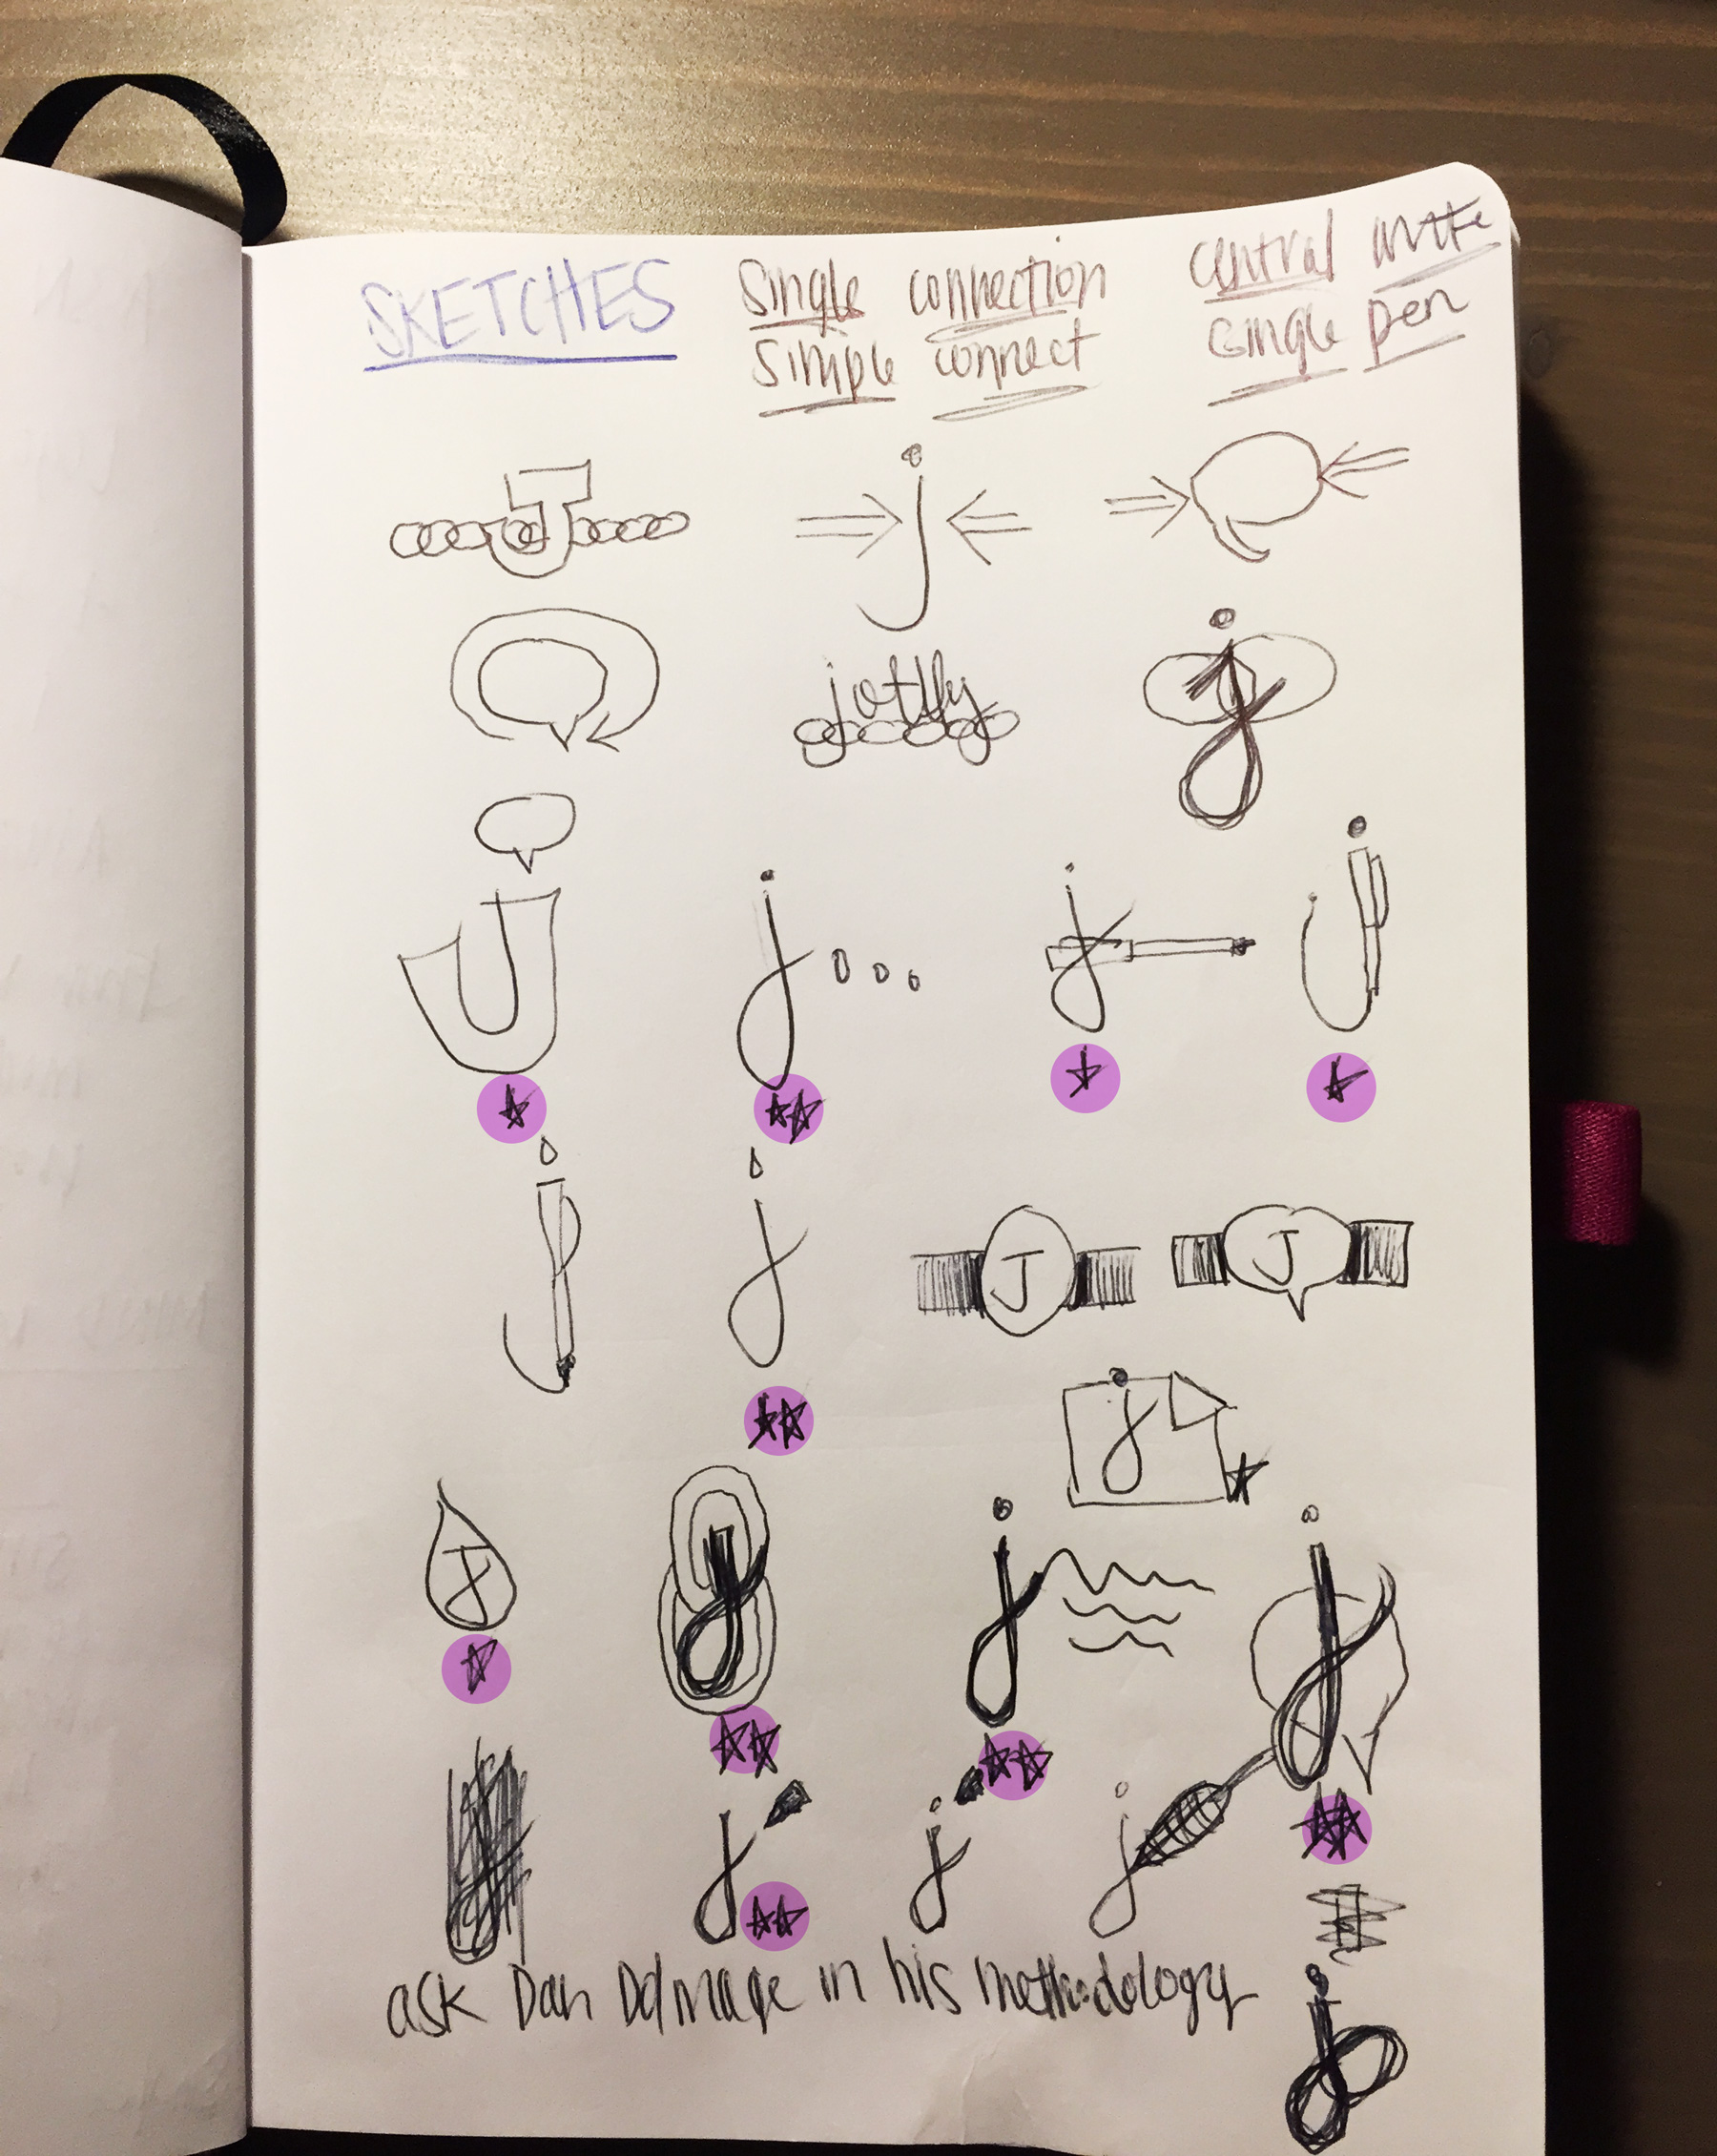 SKETCHES
single connection
simple connect
central write
single pen
J
j
jotlly
j
J
j
j
j
j
j
J
J
j
j
j
j
j
j
j
j
j
ask Dan Dalmage in his methodology
j